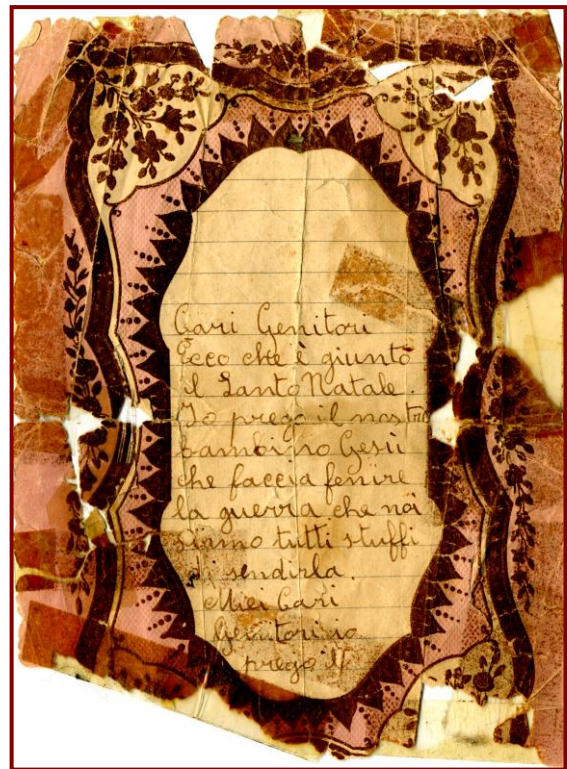 Cari Genitori
Ecco che è giunto
il Santo Natale.
Io prego il nostro
bambino Gesù
che faccia fenire
la guerra che noi
siamo tutti stuffi
di sendirla.
Miei Cari
Genitori io
prego il